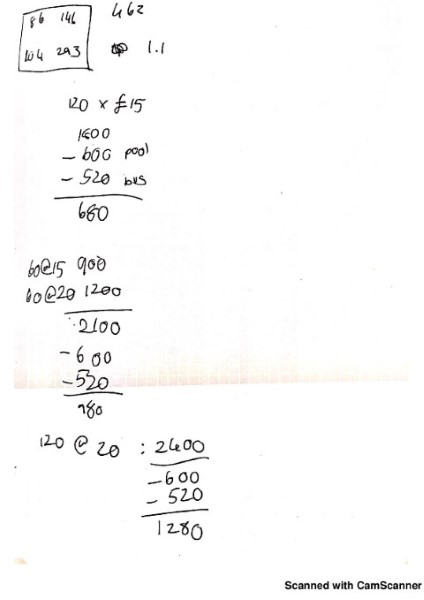 86 146 462
104 293 1.1
120 x £15
1800
- 600 pool
- 520 bus
680
60@15 900
60@20 1200
2100
- 600
- 520
980
120 @ 20 : 2400
- 600
- 520
1280
Scanned with CamScanner